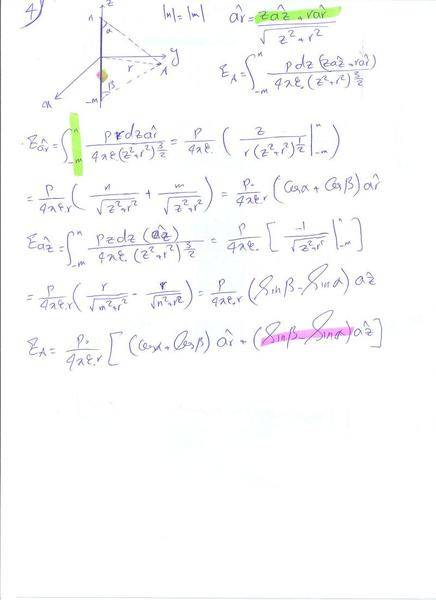 4)
z
n
α
y
r
A
β
-m
x
|n| = |m|
âr = (zâz + râr) / √(z² + r²)
E_A = ∫_{-m}^{n} ρdz (zâz + râr) / (4πε₀ (z² + r²)^{3/2})
E_{âr} = ∫_{-m}^{n} ρ r dz âr / (4πε₀ (z² + r²)^{3/2}) = ρ/(4πε₀) ( z / (r (z² + r²)^{1/2}) |_{-m}^{n} )
= ρ/(4πε₀r) ( n/√(z² + r²) + m/√(z² + r²) ) = ρ₀/(4πε₀r) (Cosα + Cosβ) âr
E_{aẑ} = ∫_{-m}^{n} ρzdz (âz) / (4πε₀ (z² + r²)^{3/2}) = ρ/(4πε₀) [ -1/√(z² + r²) |_{-m}^{n} ]
= ρ/(4πε₀r) ( r/√(m² + r²) - r/√(n² + r²) ) = ρ/(4πε₀r) (Sinβ - Sinα) aẑ
E_A = ρ₀/(4πε₀r) [ (Cosα + Cosβ) âr + (Sinβ - Sinα) aẑ ]